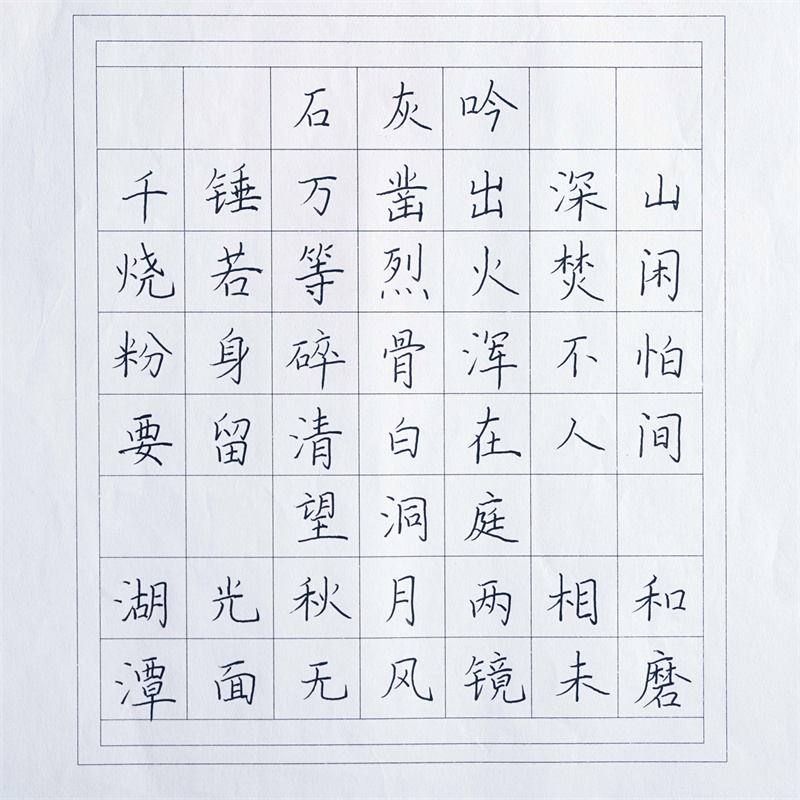 石灰吟
千锤万凿出深山
烧若等烈火焚闲
粉身碎骨浑不怕
要留清白在人间
望洞庭
湖光秋月两相和
潭面无风镜未磨